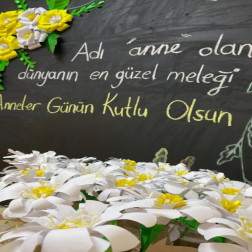 Adı 'anne' olan
dünyanın en güzel meleği
Anneler Günün Kutlu Olsun